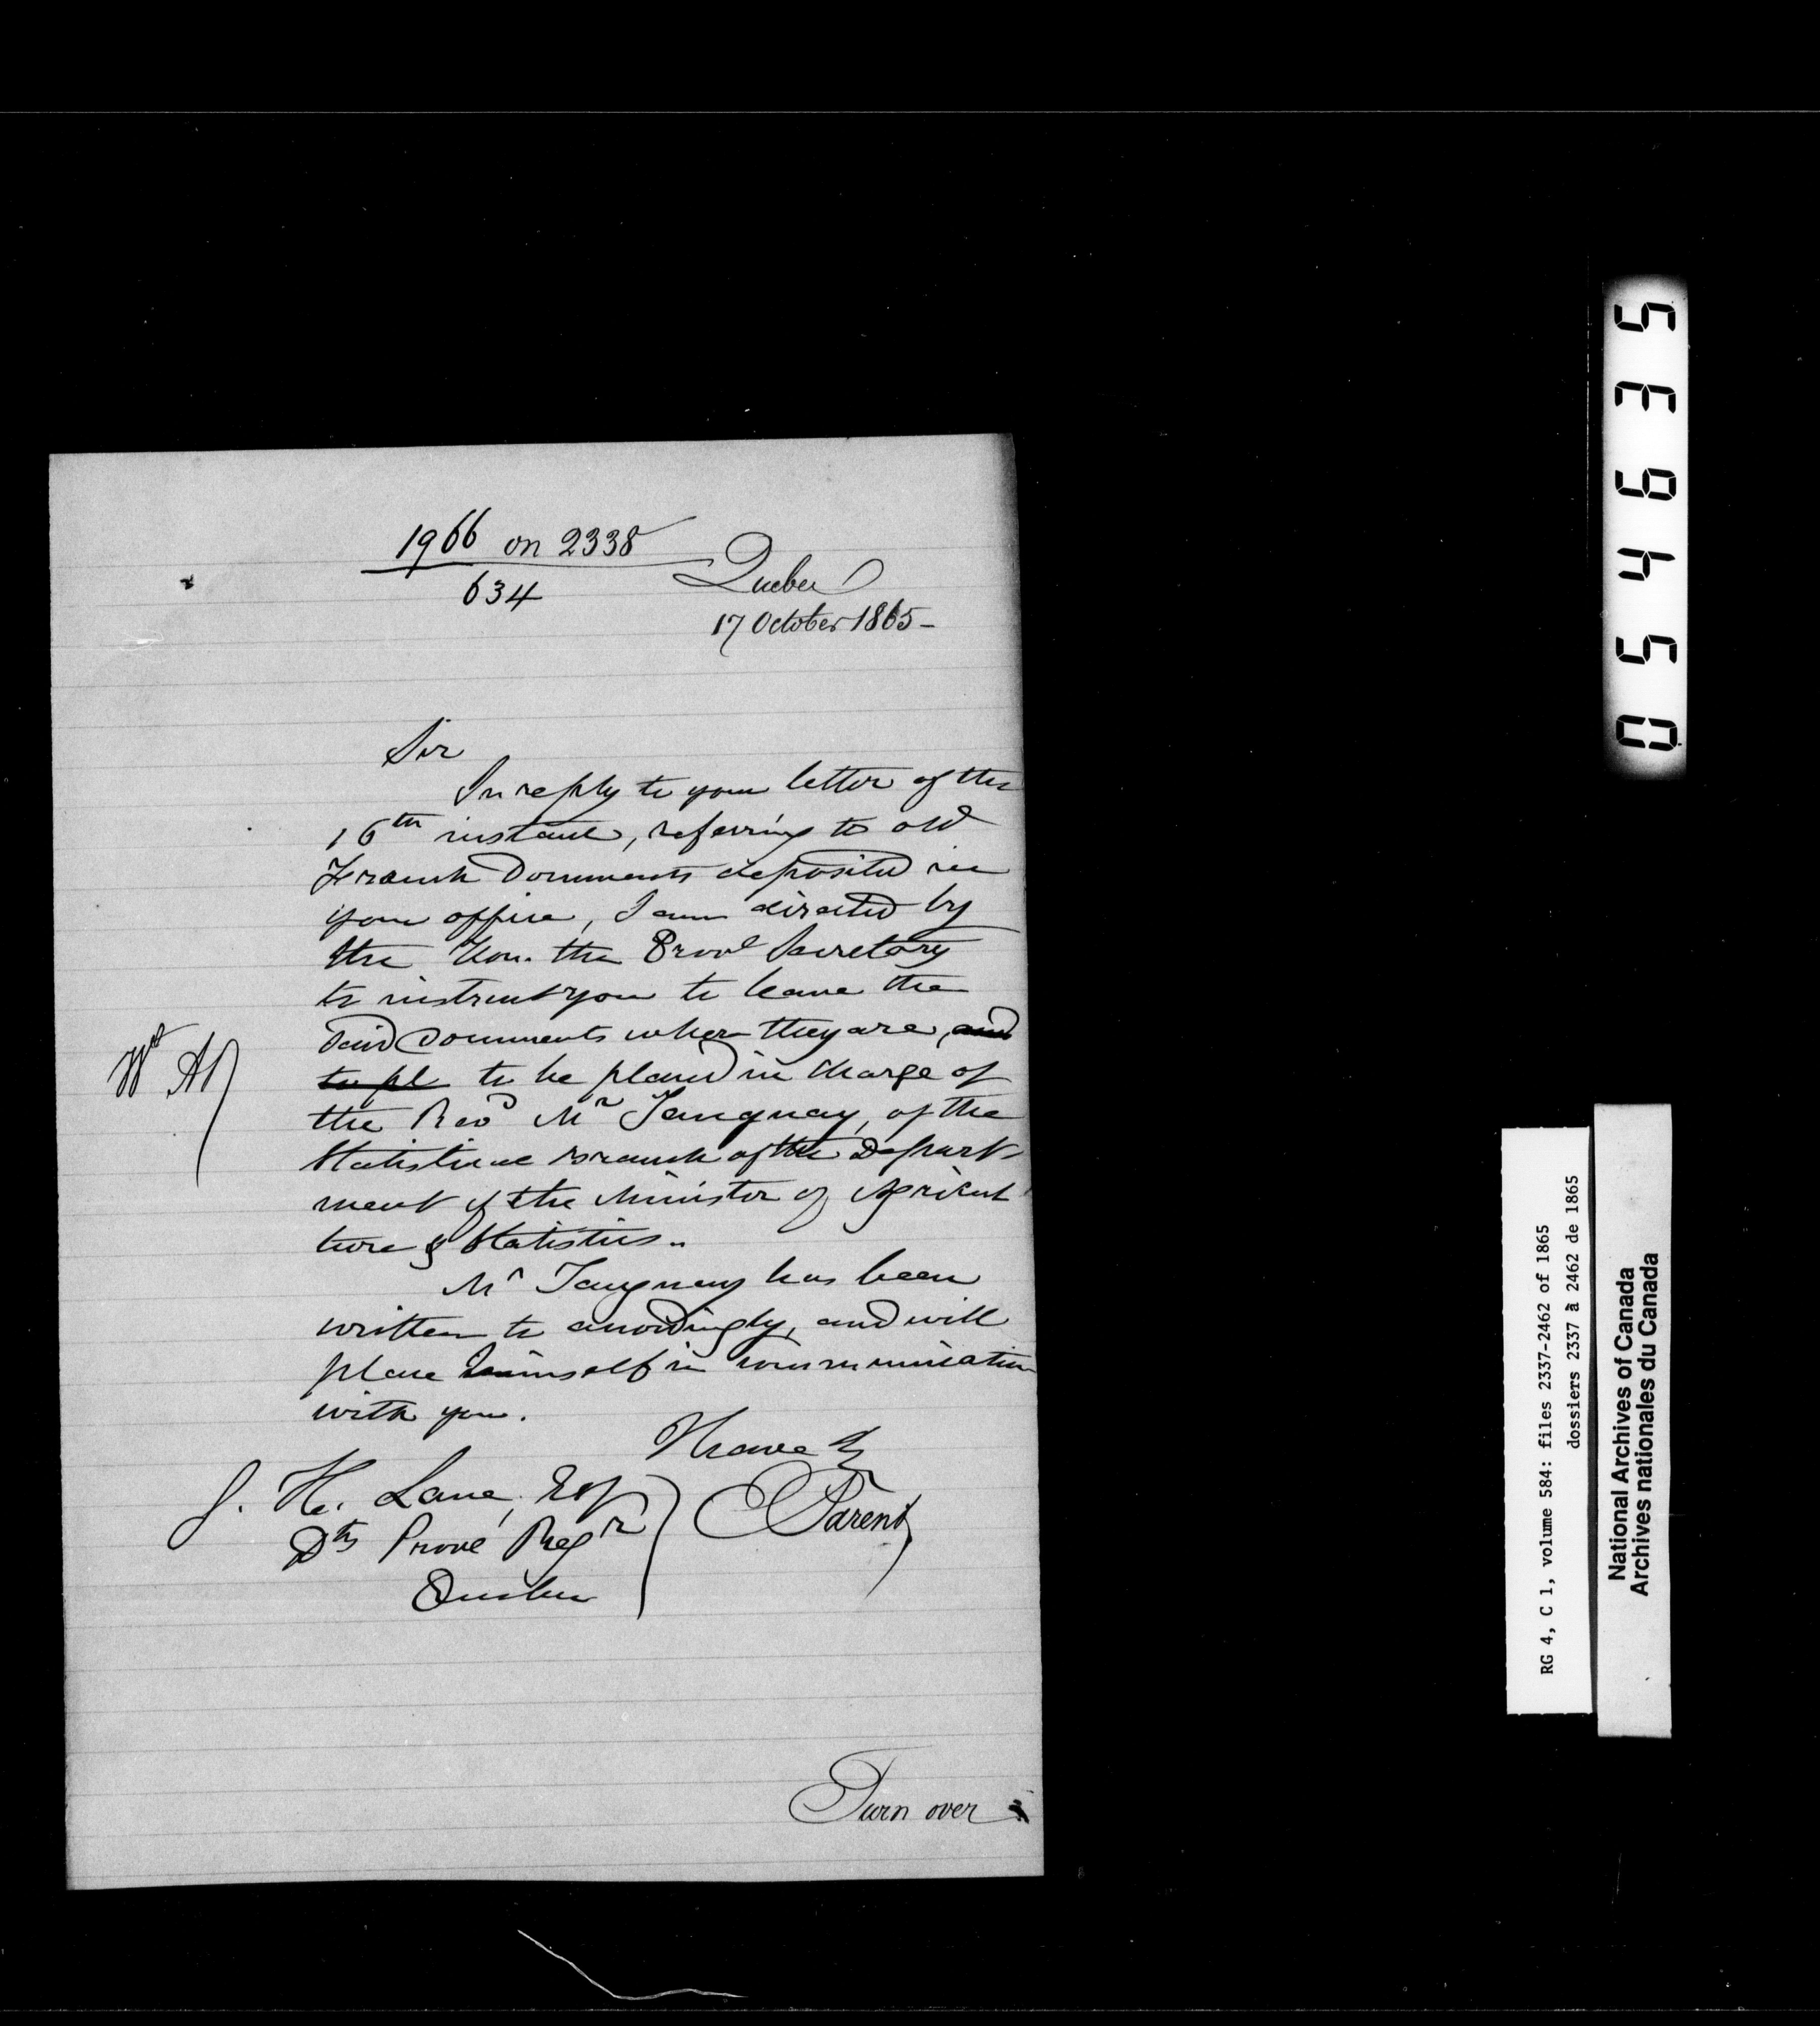 1966 on 2338
634
Quebec
17 October 1865-
Sir
In reply to your letter of the
16th instant, referring to old
French Documents deposited in
your office, I am directed by
the Hon. the Provl Secretary
to instruct you to leave the
said documents where they are, and
to pl to be placed in charge of
the Revd Mr Tanguay, of the
Statistical Branch of the Depart-
ment of the Minister of Agricul
ture & Statistics..
Mr Tanguay has been
written to accordingly, and will
place himself in communication
with you.
I have &
E Parent
J. H. Lane, Esq
Dty Provl Regr
Quebec
Turn over
0546935
RG 4, C 1, volume 584: files 2337-2462 of 1865
dossiers 2337 à 2462 de 1865
National Archives of Canada
Archives nationales du Canada